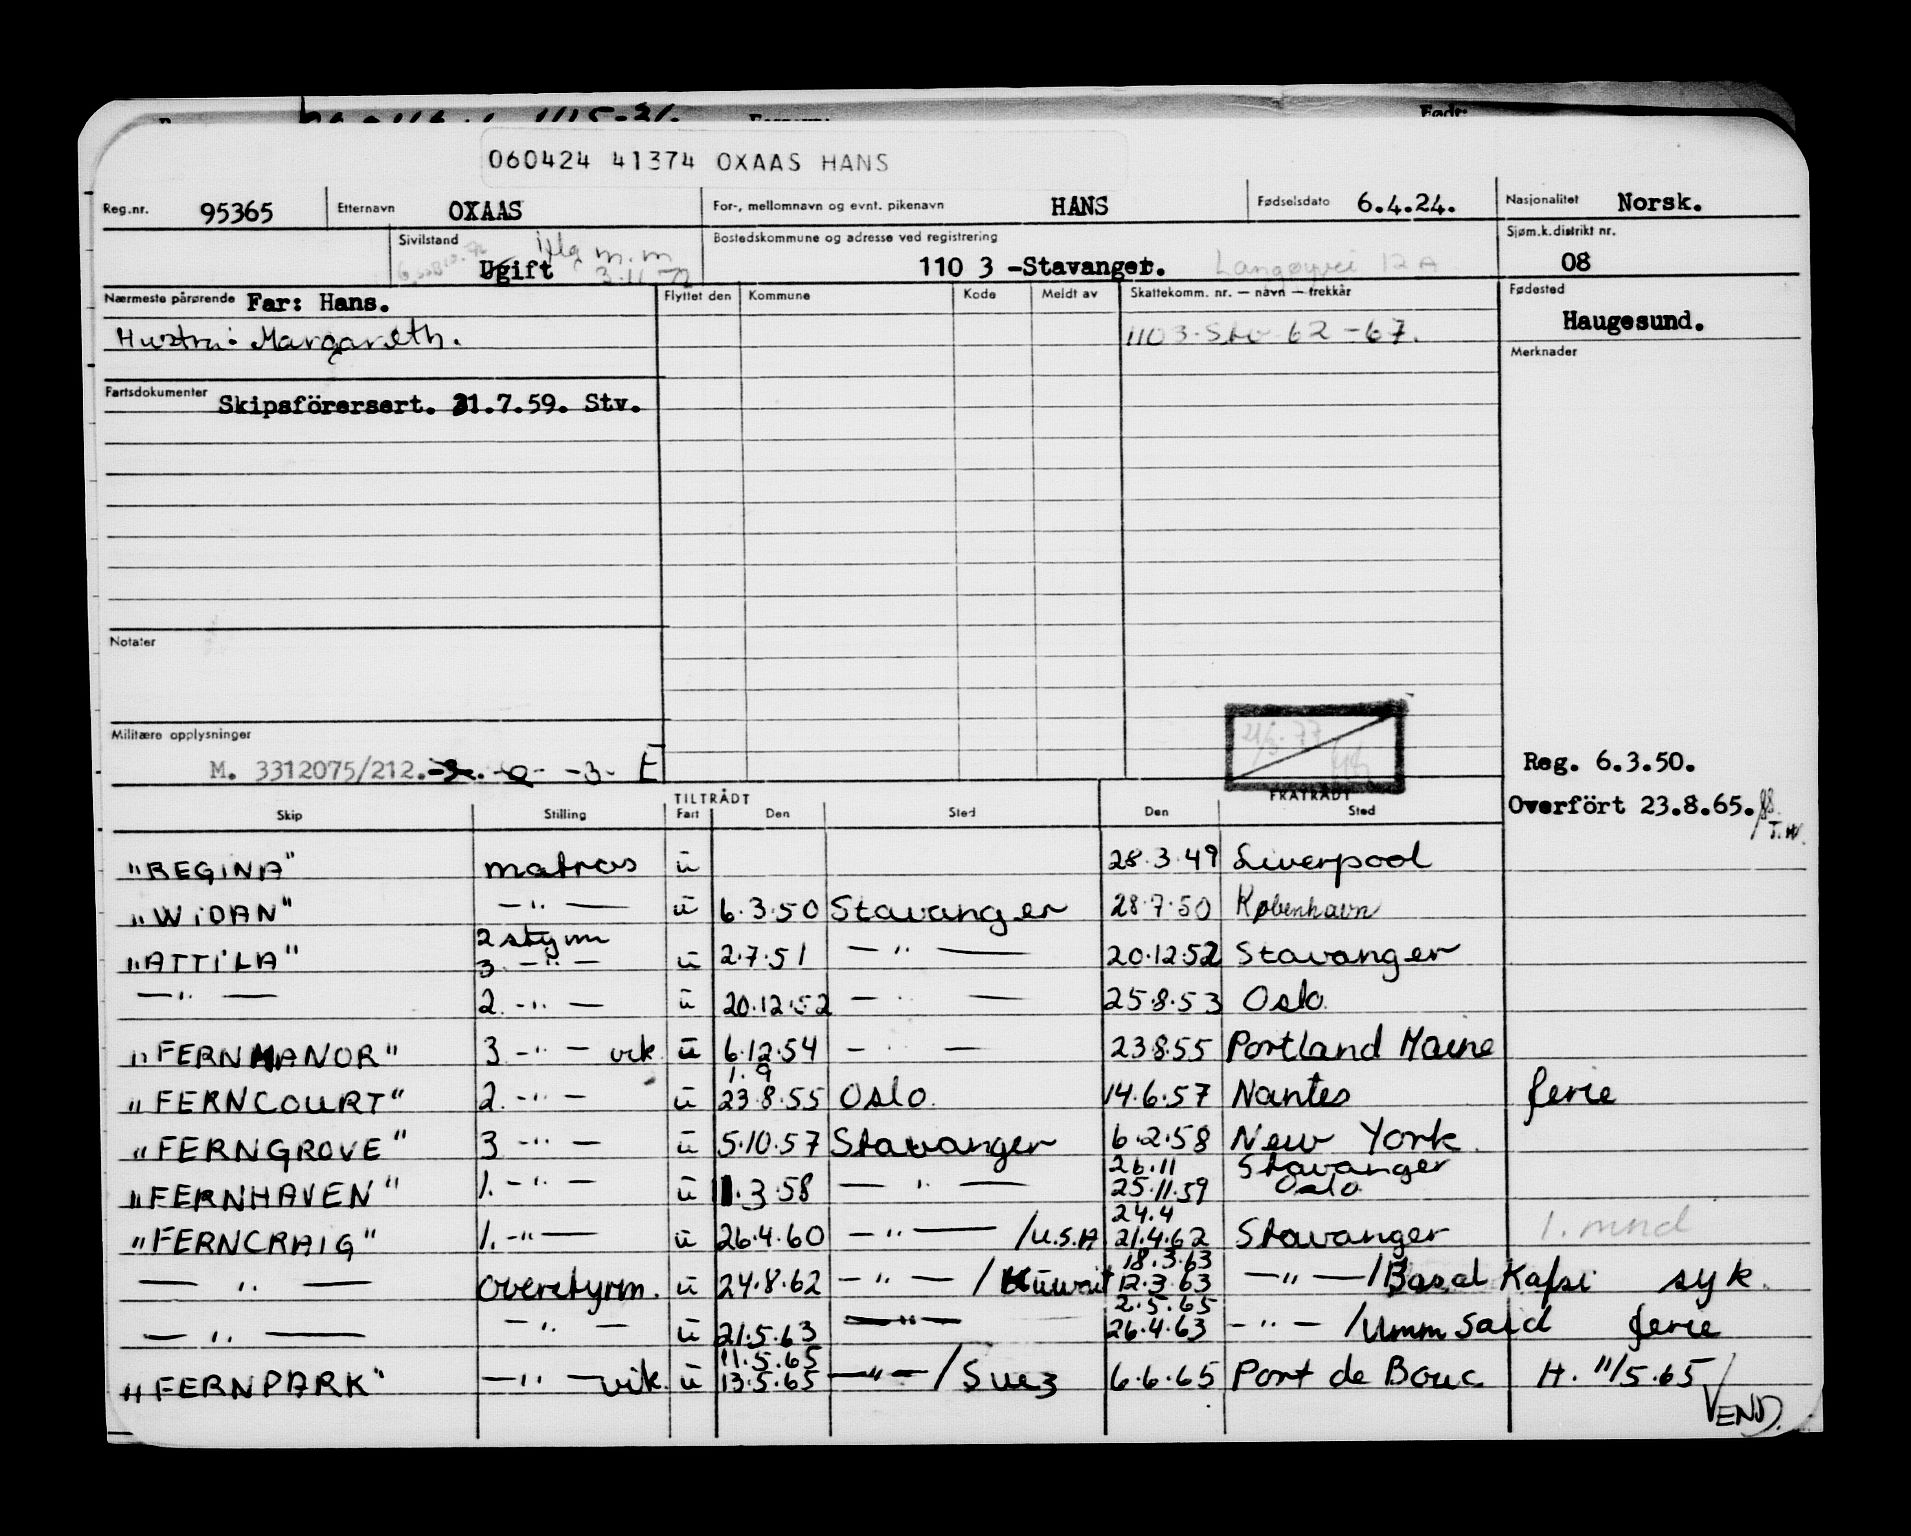 Født:
060424 41374 OXAAS HANS
Reg.nr. 95365 Etternavn OXAAS For-, mellomnavn og evnt. pikenavn HANS Fødselsdato 6.4.24. Nasjonalitet Norsk.
Sivilstand Ugift m.m 3.11.72 Bostedskommune og adresse ved registrering 110 3 -Stavanger. Langøyvei 12 A Sjøm.k.distrikt nr. 08
Nærmeste pårørende Far: Hans. Flyttet den Kommune Kode Meldt av Skattekomm. nr. — navn — trekkår Fødested
Hustru: Margareth. 1103. Stv 62 - 67. Haugesund.
Merknader
Fartsdokumenter Skipsförersert. 31.7.59. Stv.
Notater
Militære opplysninger
M. 3312075/212. -3- E
Reg. 6.3.50.
Overfört 23.8.65.
TILTRÅDT FRATRÅDT
Skip Stilling Fart Den Sted Den Sted
"REGINA" matros u 28.3.49 Liverpool
"WIDAN" — " — u 6.3.50 Stavanger 28.7.50 København
"ATTILA" 2 styrm 3. — " — u 2.7.51 — " — 20.12.52 Stavanger
— " — 2. — " — u 20.12.52 — " — 25.8.53 Oslo.
"FERNMANOR" 3 — " — vik. u 6.12.54 — " — 23.8.55 Portland Maine
"FERNCOURT" 2. — " — u 1.9 23.8.55 Oslo. 14.6.57 Nantes ferie
"FERNGROVE" 3 — " — u 5.10.57 Stavanger 6.2.58 New York.
"FERNHAVEN" 1. — " — u 1.3.58 — " — 26.11 25.11.59 Stavanger Oslo.
"FERNCRAIG" 1. — " — u 26.4.60 — " — /U.S.A 24.4 21.4.62 Stavanger 1. mnd
— " — Overstyrm. u 24.8.62 — " — /Kuwait 18.3.63 12.3.63 — " — / Kafsi syk.
— " — — " — u 21.5.63 — " — 2.5.65 26.4.63 — " — /Umm Said ferie
"FERNPARK" — " — vik. u 11.5.65 13.5.65 — " — /Suez 6.6.65 Port de Bouc. H. 11/5.65
VEND.